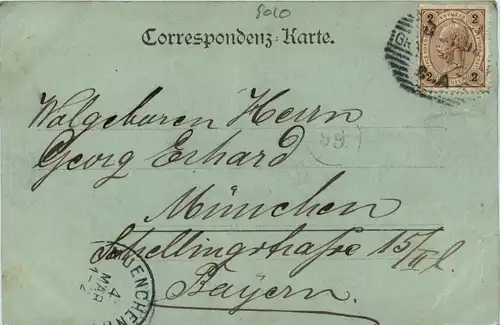 5010
Correspondenz-Karte.
2 2
2 2
Wolgeboren Herrn
Georg Erhard
89.
München
Schellingstrasse 15/II l.
Bayern.
MUENCHEN
4 MAR
1-2